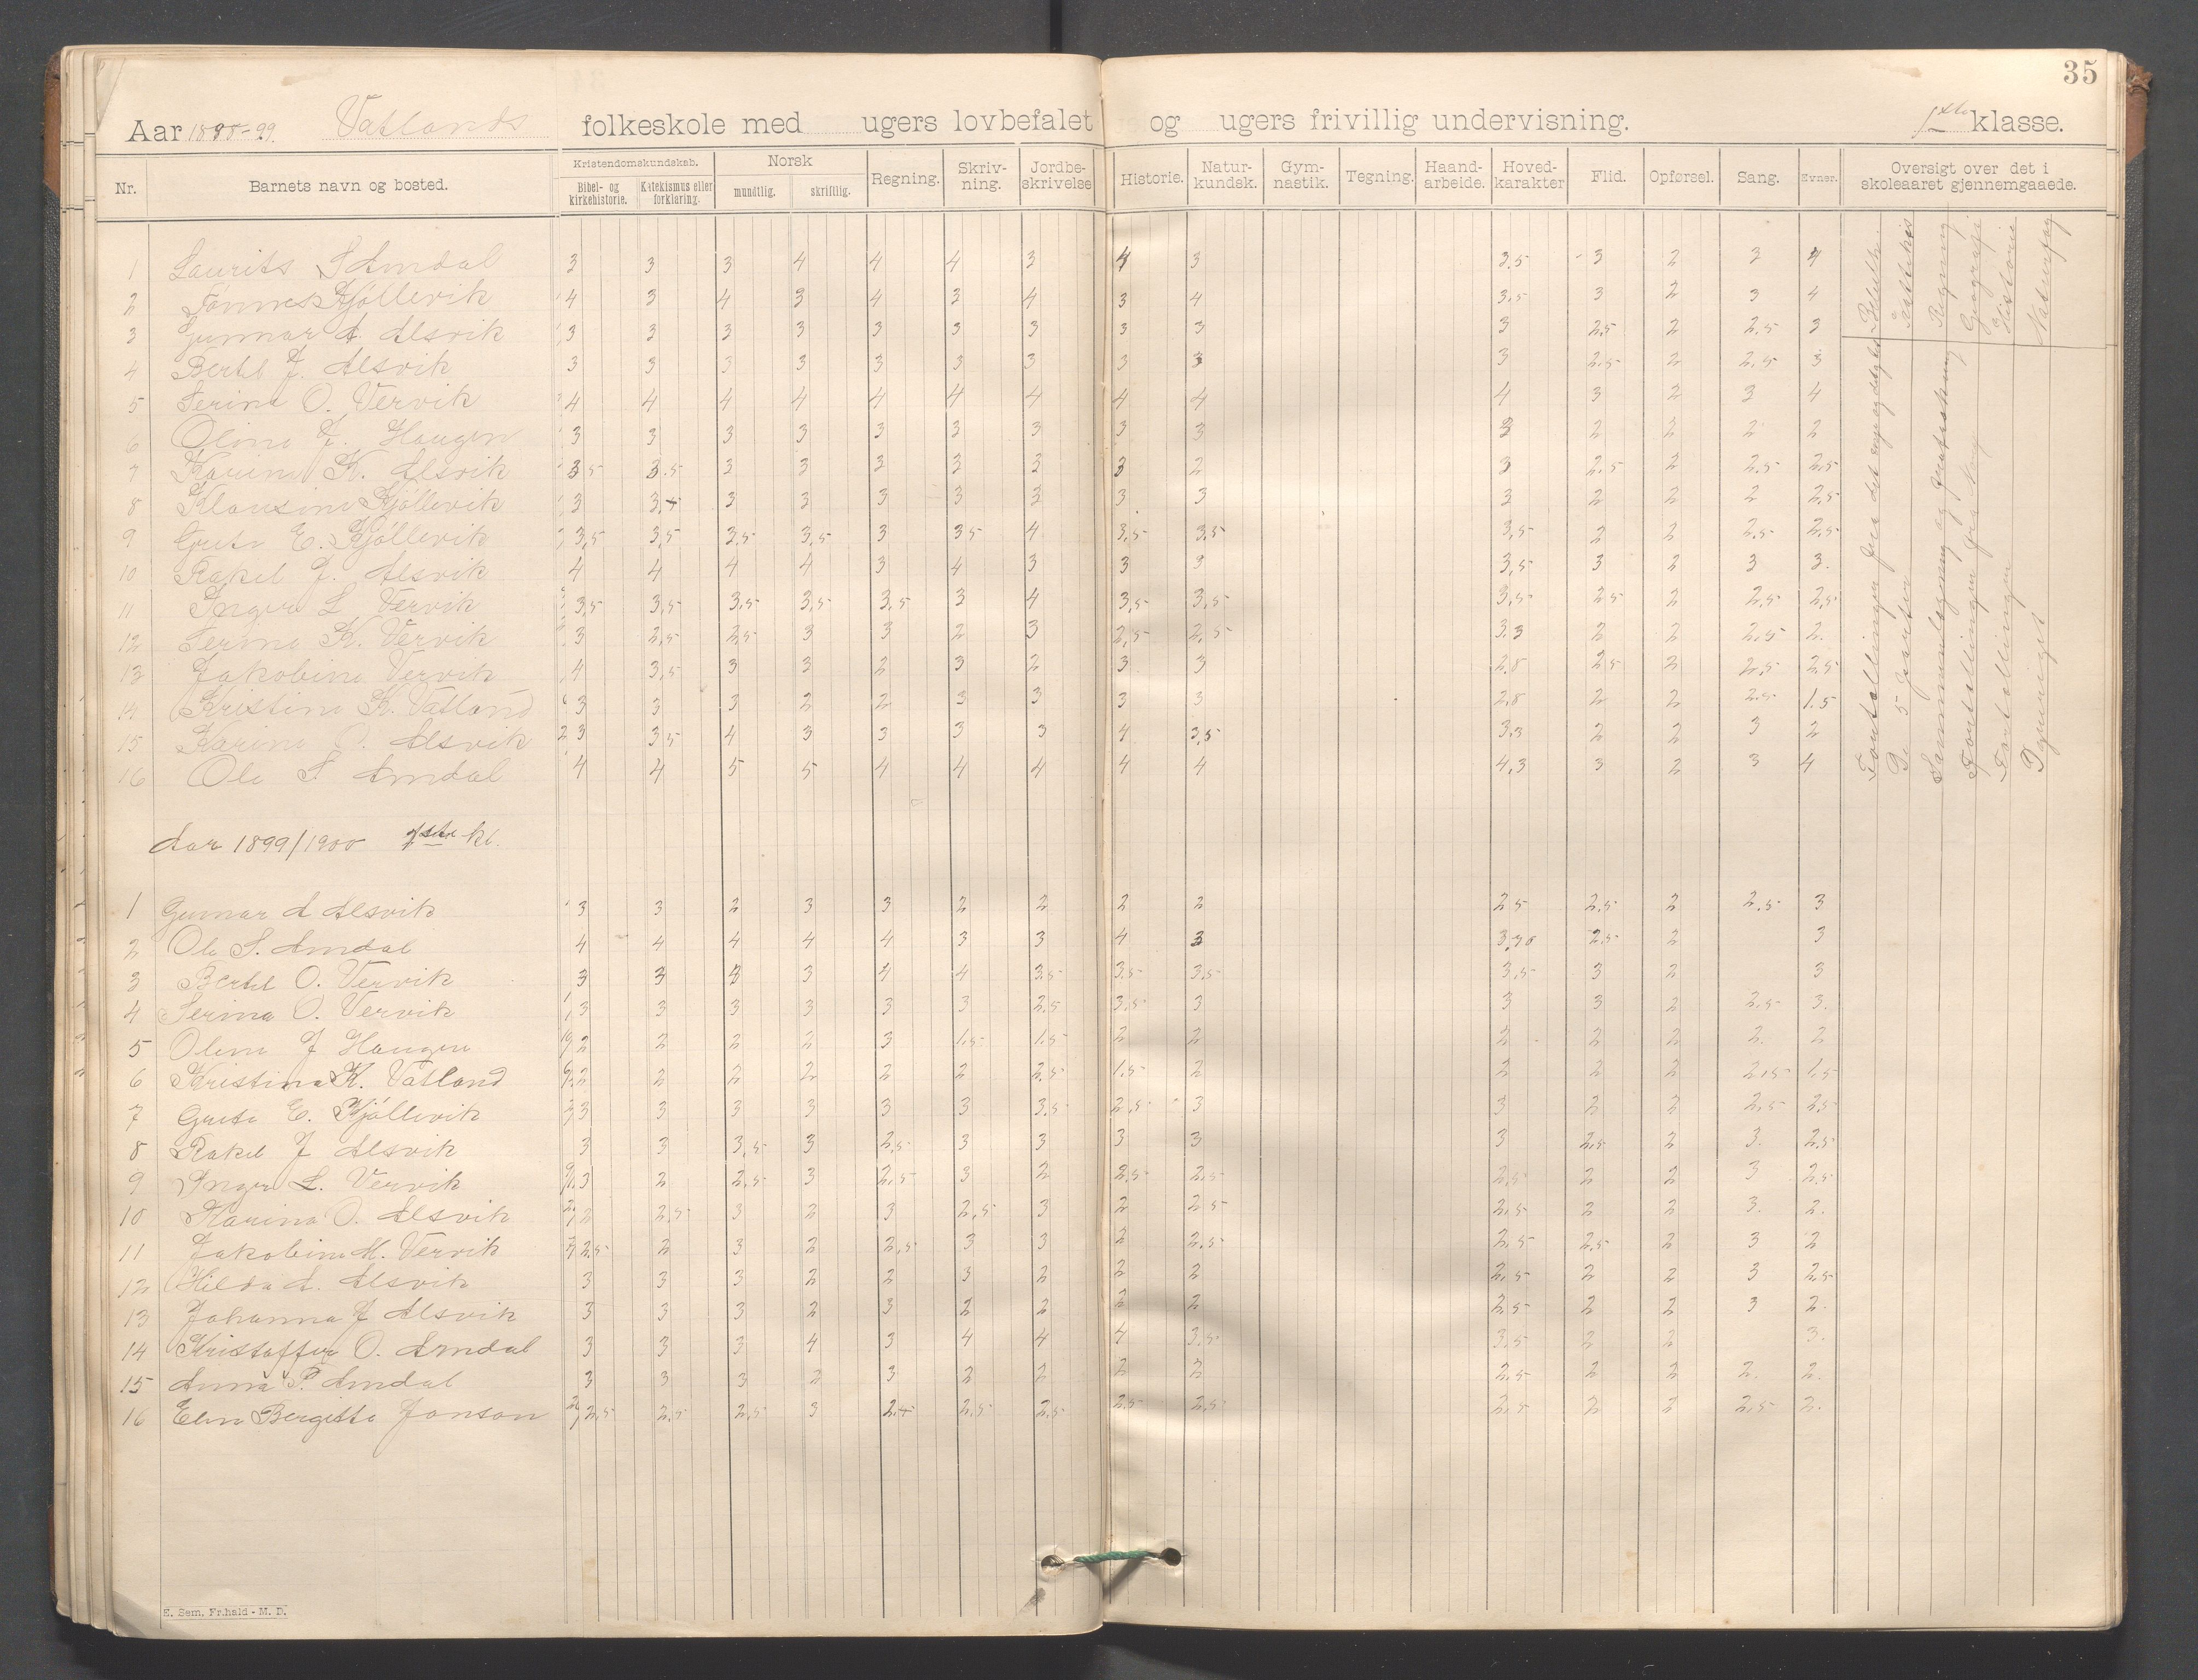 35
Aar 1898-99. Vatlands folkeskole med ugers lovbefalet og ugers frivillig undervisning. 1ste klasse.
Nr. Barnets navn og bosted. Kristendomskundskab. Bibel- og kirkehistorie. Katekismus eller forklaring. Norsk mundtlig. skriftlig. Regning. Skriv-ning. Jordbe-skrivelse Historie. Natur-kundsk. Gym-nastik. Tegning. Haand-arbeide. Hoved-karakter Flid. Opførsel. Sang. Evner. Oversigt over det i skoleaaret gjennemgaaede.
1 Laurits S Amdal 3 3 3 4 4 4 3 4 3 3.5 3 2 3 4
2 Tönnes Kjöllevik 4 3 4 3 4 3 4 3 4 3,5 3 2 3 4
3 Gunnar A. Alsvik 3 3 3 3 3 3 3 3 3 3 2,5 2 2,5 3
4 Bertel J. Alsvik 3 3 3 3 3 3 3 3 3 3 2,5 2 2,5 3
5 Serina O. Vervik 4 4 4 4 4 4 4 4 4 4 3 2 3 4
6 Oline J. Haugen 3 3 3 3 3 3 3 3 3 3 2 2 2 2
7 Karine K. Alsvik 3,5 3.5 3 3 3 3 3 3 2 3 2,5 2 2,5 2,5
8 Klausine Kjöllevik 3 3,+ 3 3 3 3 3 3 3 3 2 2 2 2,5
9 Grete E. Kjöllevik 3,5 3,5 3,5 3,5 3 3,5 4 3,5 3,5 3,5 2 2 2,5 2,5
10 Rakel J. Alsvik 4 4 4 4 3 4 3 3 3 3,5 3 2 3 3.
11 Inger L Vervik 3,5 3,5 3,5 3,5 3,5 3 4 3,5 3,5 3,5 2,5 2 2,5 2,5
12 Serine K. Vervik 3 2,5 2,5 3 3 2 3 2,5 2,5 3.3 2 2 2,5 2.
13 Jakobine Vervik 4 3,5 3 3 2 3 2 3 3 2,8 2,5 2 2,5 2,5
14 Kristine K. Vatland 3 3 3 2 2 3 3 3 3 2,8 2 2 2,5 1.5
15 Karine O. Alsvik 3 3,5 4 3 3 3 3 4 3,5 3,3 2 2 3 2
16 Ole S. Amdal 4 4 5 5 4 4 4 4 4 4,3 3 2 3 4
Bibelh. Fortællinger fra det nye
Regning Sammenlægning og
Geografi Fortællinger fra
Historie Fortællinger
Naturfag
Aar 1899/1900 1ste kl.
1 Gunnar A Alsvik 3 3 2 3 3 2 2 2 2 2,5 2,5 2 2,5 3
2 Ole S. Amdal 4 4 4 4 4 3 3 4 3 3,70 2,5 2 3
3 Bertel O. Vervik 3 3 3 3 4 4 3,5 3,5 3,5 3,5 3 2 3
4 Serina O. Vervik 3 3 3 3 3 3 2,5 3,5 3 3 3 2 2,5 3.
5 Oline J Haugen 2 2 2 2 3 1,5 1,5 2 2 2 2 2 2. 2
6 Kristina K. Vatland 2 2 2 2 2 2 2,5 1,5 2 2 2 2 2,5 1,5
7 Grete E. Kjöllevik 3 3 3 3 3 3 3,5 2,5 3 3 2 2 2,5 2,5
8 Rakel J Alsvik 3 3 3,5 3 2,5 3 3 3 3 3 2,5 2 3. 2,5
9 Inger L. Vervik 3 2 2,5 3 2,5 3 2 2,5 2,5 2,5 2 2 3 2,5
10 Karina O. Alsvik 2 2,5 3 2 3 2,5 3 2 2,5 2,5 2 2 3. 2.
11 Jakobine M. Vervik 2,5 2 3 2 2,5 3 3 2 2,5 2,5 2,5 2 3 2
12 Hilda A. Alsvik 3 3 3 2 2 3 2 2 2 2,5 2 2 3 2,5
13 Johanna J Alsvik 3 3 3 2 3 2 2 2 2 2,5 2 2 3 2.
14 Kristoffer O. Amdal 3 3 3 4 3 4 4 4 3,5 3,5 2 2 3.
15 Anna P. Amdal 3 3 3 2 3 2 2 2 2 2,5 2 2 2. 2.
16 Elen Bergitte Jonson 2,5 2,5 2,5 3 2,+ 2,5 2,5 2,5 2,5 2,5 2 2 2,5 2.
E. Sem, Fr.hald - M. D.